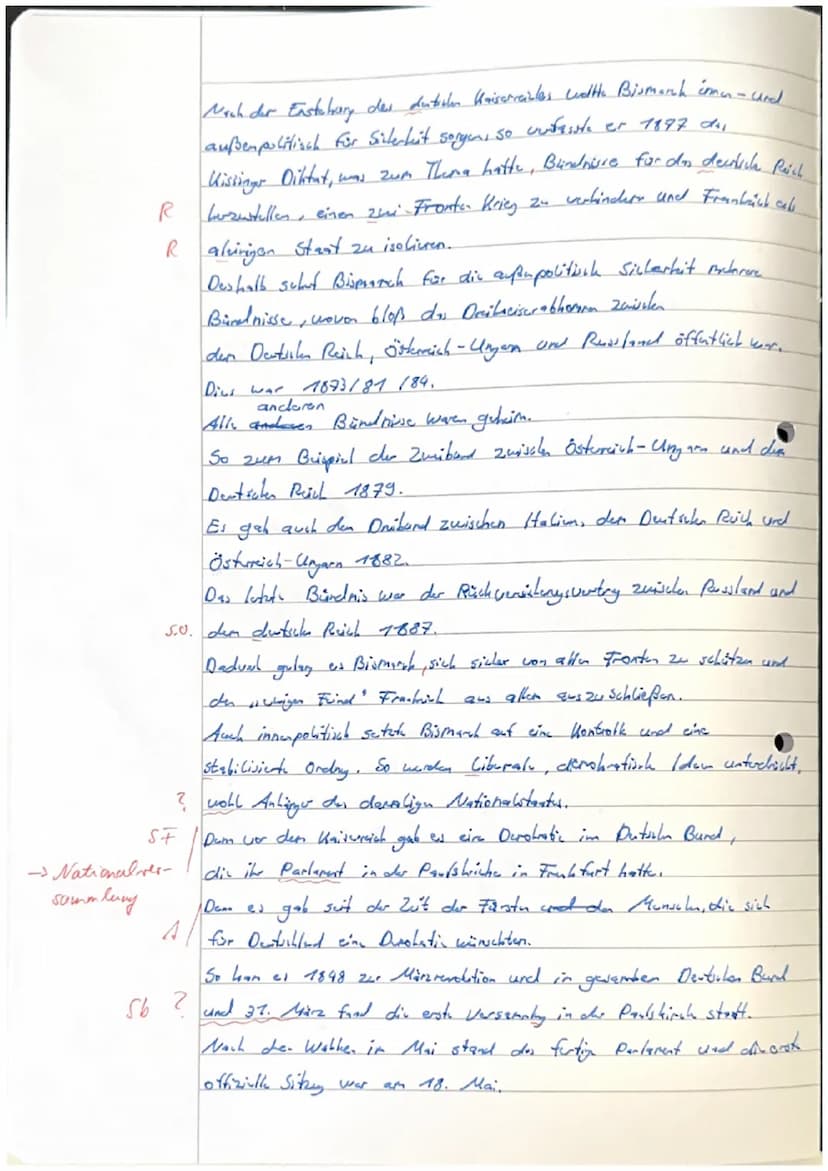 Nach der Enstehung des deutschen Kaiserreiches wollte Bismarck innen- und
außenpolitisch für Sicherheit sorgen, so verfasste er 1877 das
Kissinger Diktat, was zum Thema hatte, Bündnisse für das deutsche Reich
R herzustellen, einen zwei-Fronten Krieg zu verhindern und Frankreich als
R alleinigen Staat zu isolieren.
Deshalb schuf Bismarck für die außenpolitisch Sicherheit mehrere
Bündnisse, wovon bloß das Dreikaiserabkommen zwischen
dem Deutschen Reich, Österreich-Ungarn und Russland öffentlich war.
Dies war 1873/81/84.
Alle anderen Bündnisse waren geheim.
So zum Beispiel der Zweibund zwischen Österreich-Ungarn und dem
Deutschen Reich 1879.
Es gab auch den Dreibund zwischen Italien, dem Deutschen Reich und
Österreich-Ungarn 1882.
Das letzte Bündnis war der Rückversicherungsvertrag zwischen Russland und
s.o. dem deutschen Reich 1887.
Dadurch gelang es Bismarck, sich sicher von allen Fronten zu schützen und
den „ewigen Feind" Frankreich aus allem auszuschließen.
Auch innenpolitisch setzte Bismarck auf eine Kontrolle und eine
stabilisierte Ordnung. So werden Liberale, demokratische Ideen unterdrückt,
? wohl Anhänger des damaligen Nationalstaates.
SF Denn vor dem Kaiserreich gab es eine Demokratie im Deutschen Bund,
→ Nationalver-
sammlung
die ihr Parlament in der Paulskirche in Frankfurt hatte.
Denn es gab seit der Zeit der Fürsten Menschen, die sich
A für Deutschland eine Demokratie wünschten.
So kam es 1848 zur Märzrevolution und in gesamben Deutschen Bund
Sb ? und 31. März fand die erste Versammlung in der Paulskirche statt.
Nach den Wahlen im Mai stand das fertige Parlament und die erste
offizielle Sitzung war am 18. Mai.